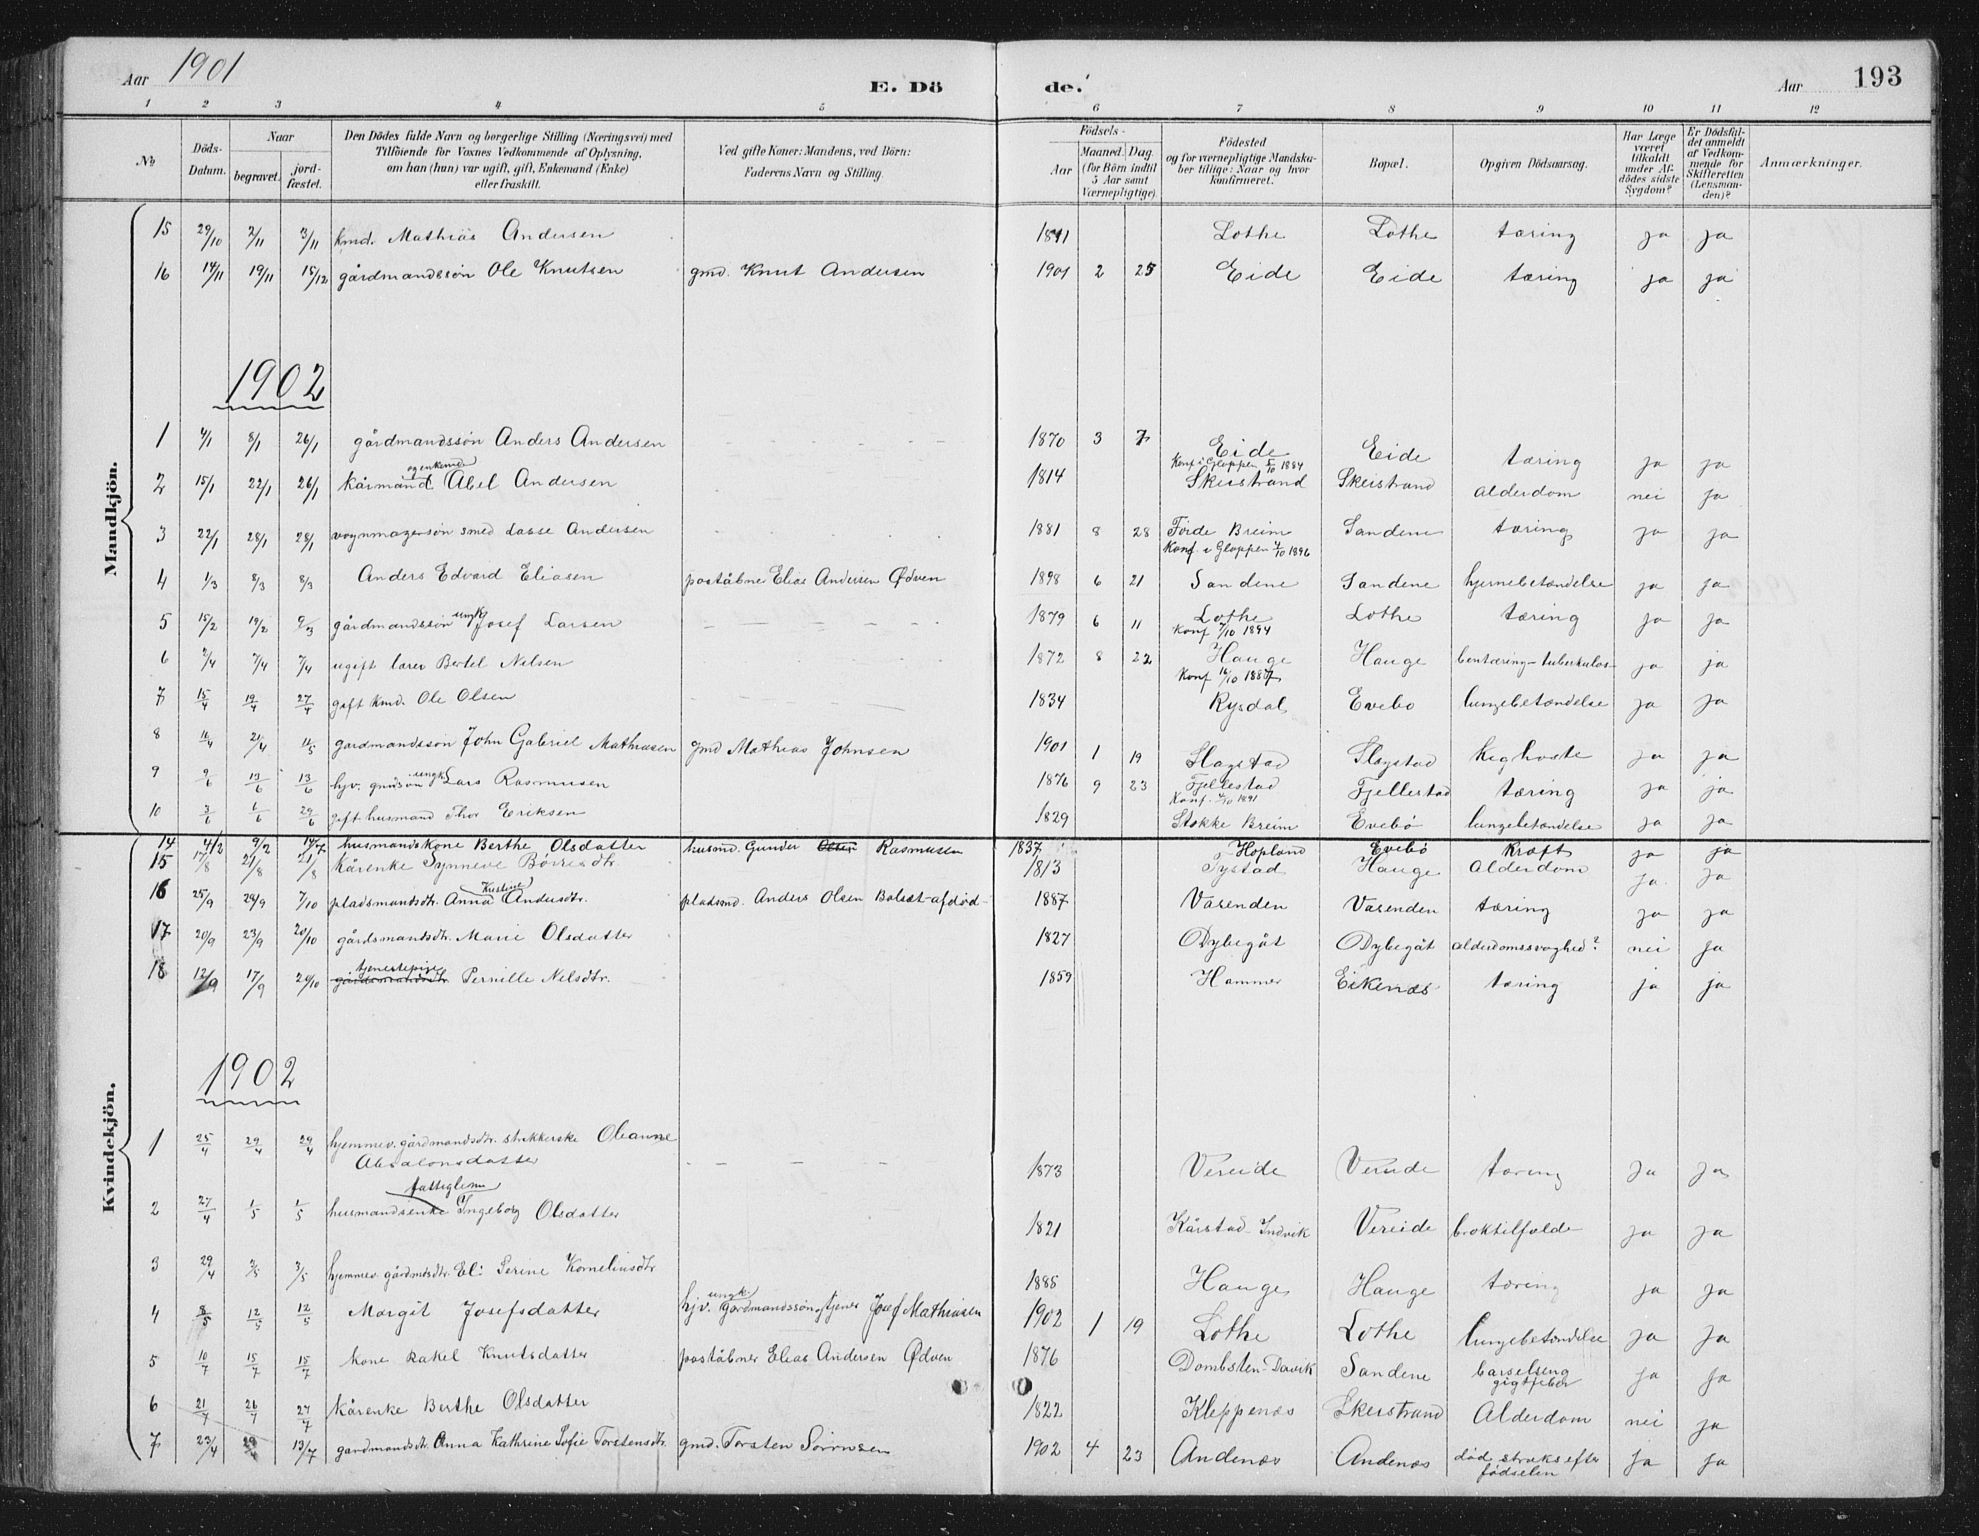 Aar 1901 E. Döde. Aar 193
1 2 3 4 5 6 7 8 9 10 11 12
No
Döds-Datum.
Naar
begravet.
jord-fæstet.
Den Dödes fulde Navn og borgerlige Stilling (Næringsvei) med
Tilföiende for Voxnes Vedkommende af Oplysning,
om han (hun) var ugift, gift, Enkemand (Enke)
eller fraskilt.
Ved gifte Koner: Mandens, ved Börn:
Faderens Navn og Stilling.
Födsels-
Aar
Maaned. Dag.
(for Börn indtil
5 Aar samt
Værnepligtige)
Födested
og for værnepligtige Mandska-
ber tillige: Naar og hvor
konfirmeret.
Bopæl.
Opgiven Dödsaarsag.
Har Læge
været
tilkaldt
under Af-
dödes sidste
Sygdom?
Er Dödsfal-
det anmeldt
af Vedkom-
mende for
Skifteretten
(Lensman-
den)?
Anmærkninger.
Mandkjön.
15 29/10 2/11 3/11 kmd. Mathias Andersen 1841 Lothe Lothe tæring ja ja
16 14/11 19/11 15/12 gårdmandssön Ole Knutsen gmd. Knut Andersen 1901 2 25 Eide Eide tæring ja ja
1902
1 4/1 8/1 26/1 gårdmandssön Anders Andersen 1870 3 7 Eide Konf i Gloppen 5/10 1884 Eide tæring ja ja
2 15/1 22/1 26/1 kårmand og enkemd Abel Andersen 1814 Skeistrand Skeistrand alderdom nei ja
3 22/1 28/1 28/1 vognmagersön smed Lasse Andersen 1881 8 28 Förde Breim Konf. i Gloppen 4/10 1896 Sandene tæring ja ja
4 1/3 8/3 8/3 Anders Edvard Eliasen poståbner Elias Andersen Ødven 1898 6 21 Sandene Sandene hjernebetændelse ja ja
5 15/2 19/2 9/3 gårdmandssön ungk Josef Larsen 1879 6 11 Lothe Konf 7/10 1894 Lothe tæring ja ja
6 2/4 7/4 7/4 ugift lærer Bertel Nilsen 1872 8 22 Hauge Konf 16/10 1887 Hauge bentæring-tuberkulos- ja ja
7 15/4 19/4 27/4 gift kmd. Ole Olsen 1834 Rysdal Evebø lungebetændelse ja ja
8 16/4 21/4 11/5 gardmandssön John Gabriel Mathiasen gmd Mathias Johnsen 1901 1 19 Slagstad Slagstad kighoste ja ja
9 9/6 13/6 13/6 hjv. gmdsön ungk Lars Rasmusen 1876 9 23 Fjellestad Konf. 4/10 1891 Fjellestad tæring ja ja
10 3/6 1/6 29/6 gift husmand Thor Eriksen 1829 Stokke Breim Evebø lungebetændelse ja ja
Kvindekjön.
14 4/2 9/2 14/7 husmandskone Berthe Olsdatter husmd. Gunder Olsen Rasmusen 1837 Hopland Evebø Kræft ja ja
15 17/8 21/8 21/8 Kårenke Synneve Börresdtr. 1813 Tystad Hauge Alderdom ja ja
16 25/9 29/9 7/10 pladsmandsdtr. Anna Kristine Andersdtr. pladsmd. Anders Olsen Bolset-afdöd- 1887 Vårenden Vårenden tæring ja ja
17 20/9 23/9 20/10 gårdsmandsdtr. Marie Olsdatter 1827 Dybegåt Dybegåt alderdomssvaghed? nei ja
18 12/9 17/9 20/10 gårdsmandsdtr tjenestepige Pernille Nelsdtr. 1859 Hammer Eikenæs tæring ja ja
1902
1 25/4 29/4 29/4 hjemmev. gårdmandsdtr. strikkerske Oleanne
Absalonsdatter 1873 Vereide Vereide tæring ja ja
2 27/4 1/5 1/5 husmandsenke fattiglem Ingeborg Olsdatter 1821 Kårstad Indvik Vereide broktilfælde ja ja
3 29/4 3/5 3/5 hjemmev. gårdmdsdtr. Eli Serine Korneliusdtr 1885 Hauge Hauge tæring ja ja
4 8/5 12/5 12/5 Margit Josefsdatter hjv. ungk. gardmandssön, tjener Josef Mathiasen 1902 1 19 Lothe Lothe lungebetændelse ja ja
5 10/7 15/7 15/7 kone Rakel Knutsdatter poståbner Elias Andersen Ødven 1876 Dombsten-Davik Sandene barselseng gigtfeber ja ja
6 21/7 26/7 27/7 Kårenke Berthe Olsdatter 1822 Kleppenæs Skeistrand Alderdom nei ja
7 23/4 29/4 13/7 gardmandsdtr. Anna Kathrine Sofie Torstensdtr. gmd. Torsten Sörensen 1902 4 23 Andenæs Andenæs död straks efter födselen ja ja